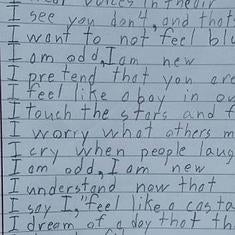 I see you don't, and that
I want to not feel blu
I am odd, I am new
I pretend that you are
I feel like a boy in ou
I touch the stars and f
I worry what others m
I cry when people laug
I am odd, I am new
I understand now that
I say I, "feel like a casta
I dream of a day that th